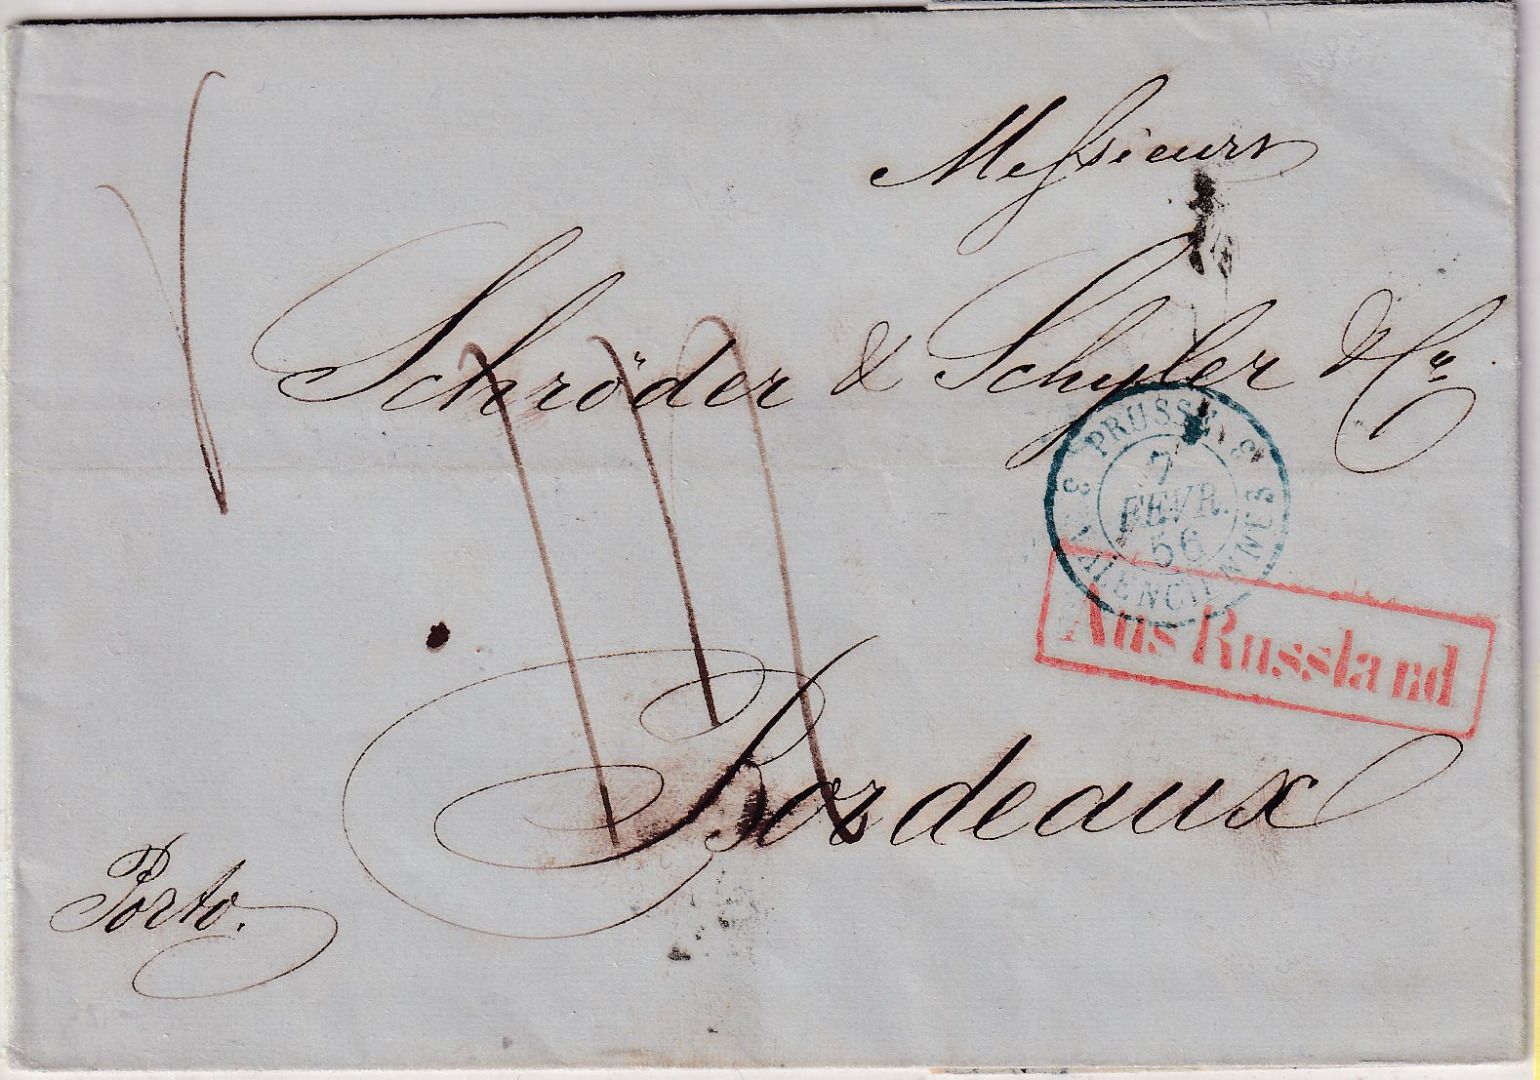 Messieurs
Schröder & Schyler & Co.
PRUSSE
3 VALENCIENNES 3
7
FEVR.
56
Aus Russland
Bordeaux
Porto.